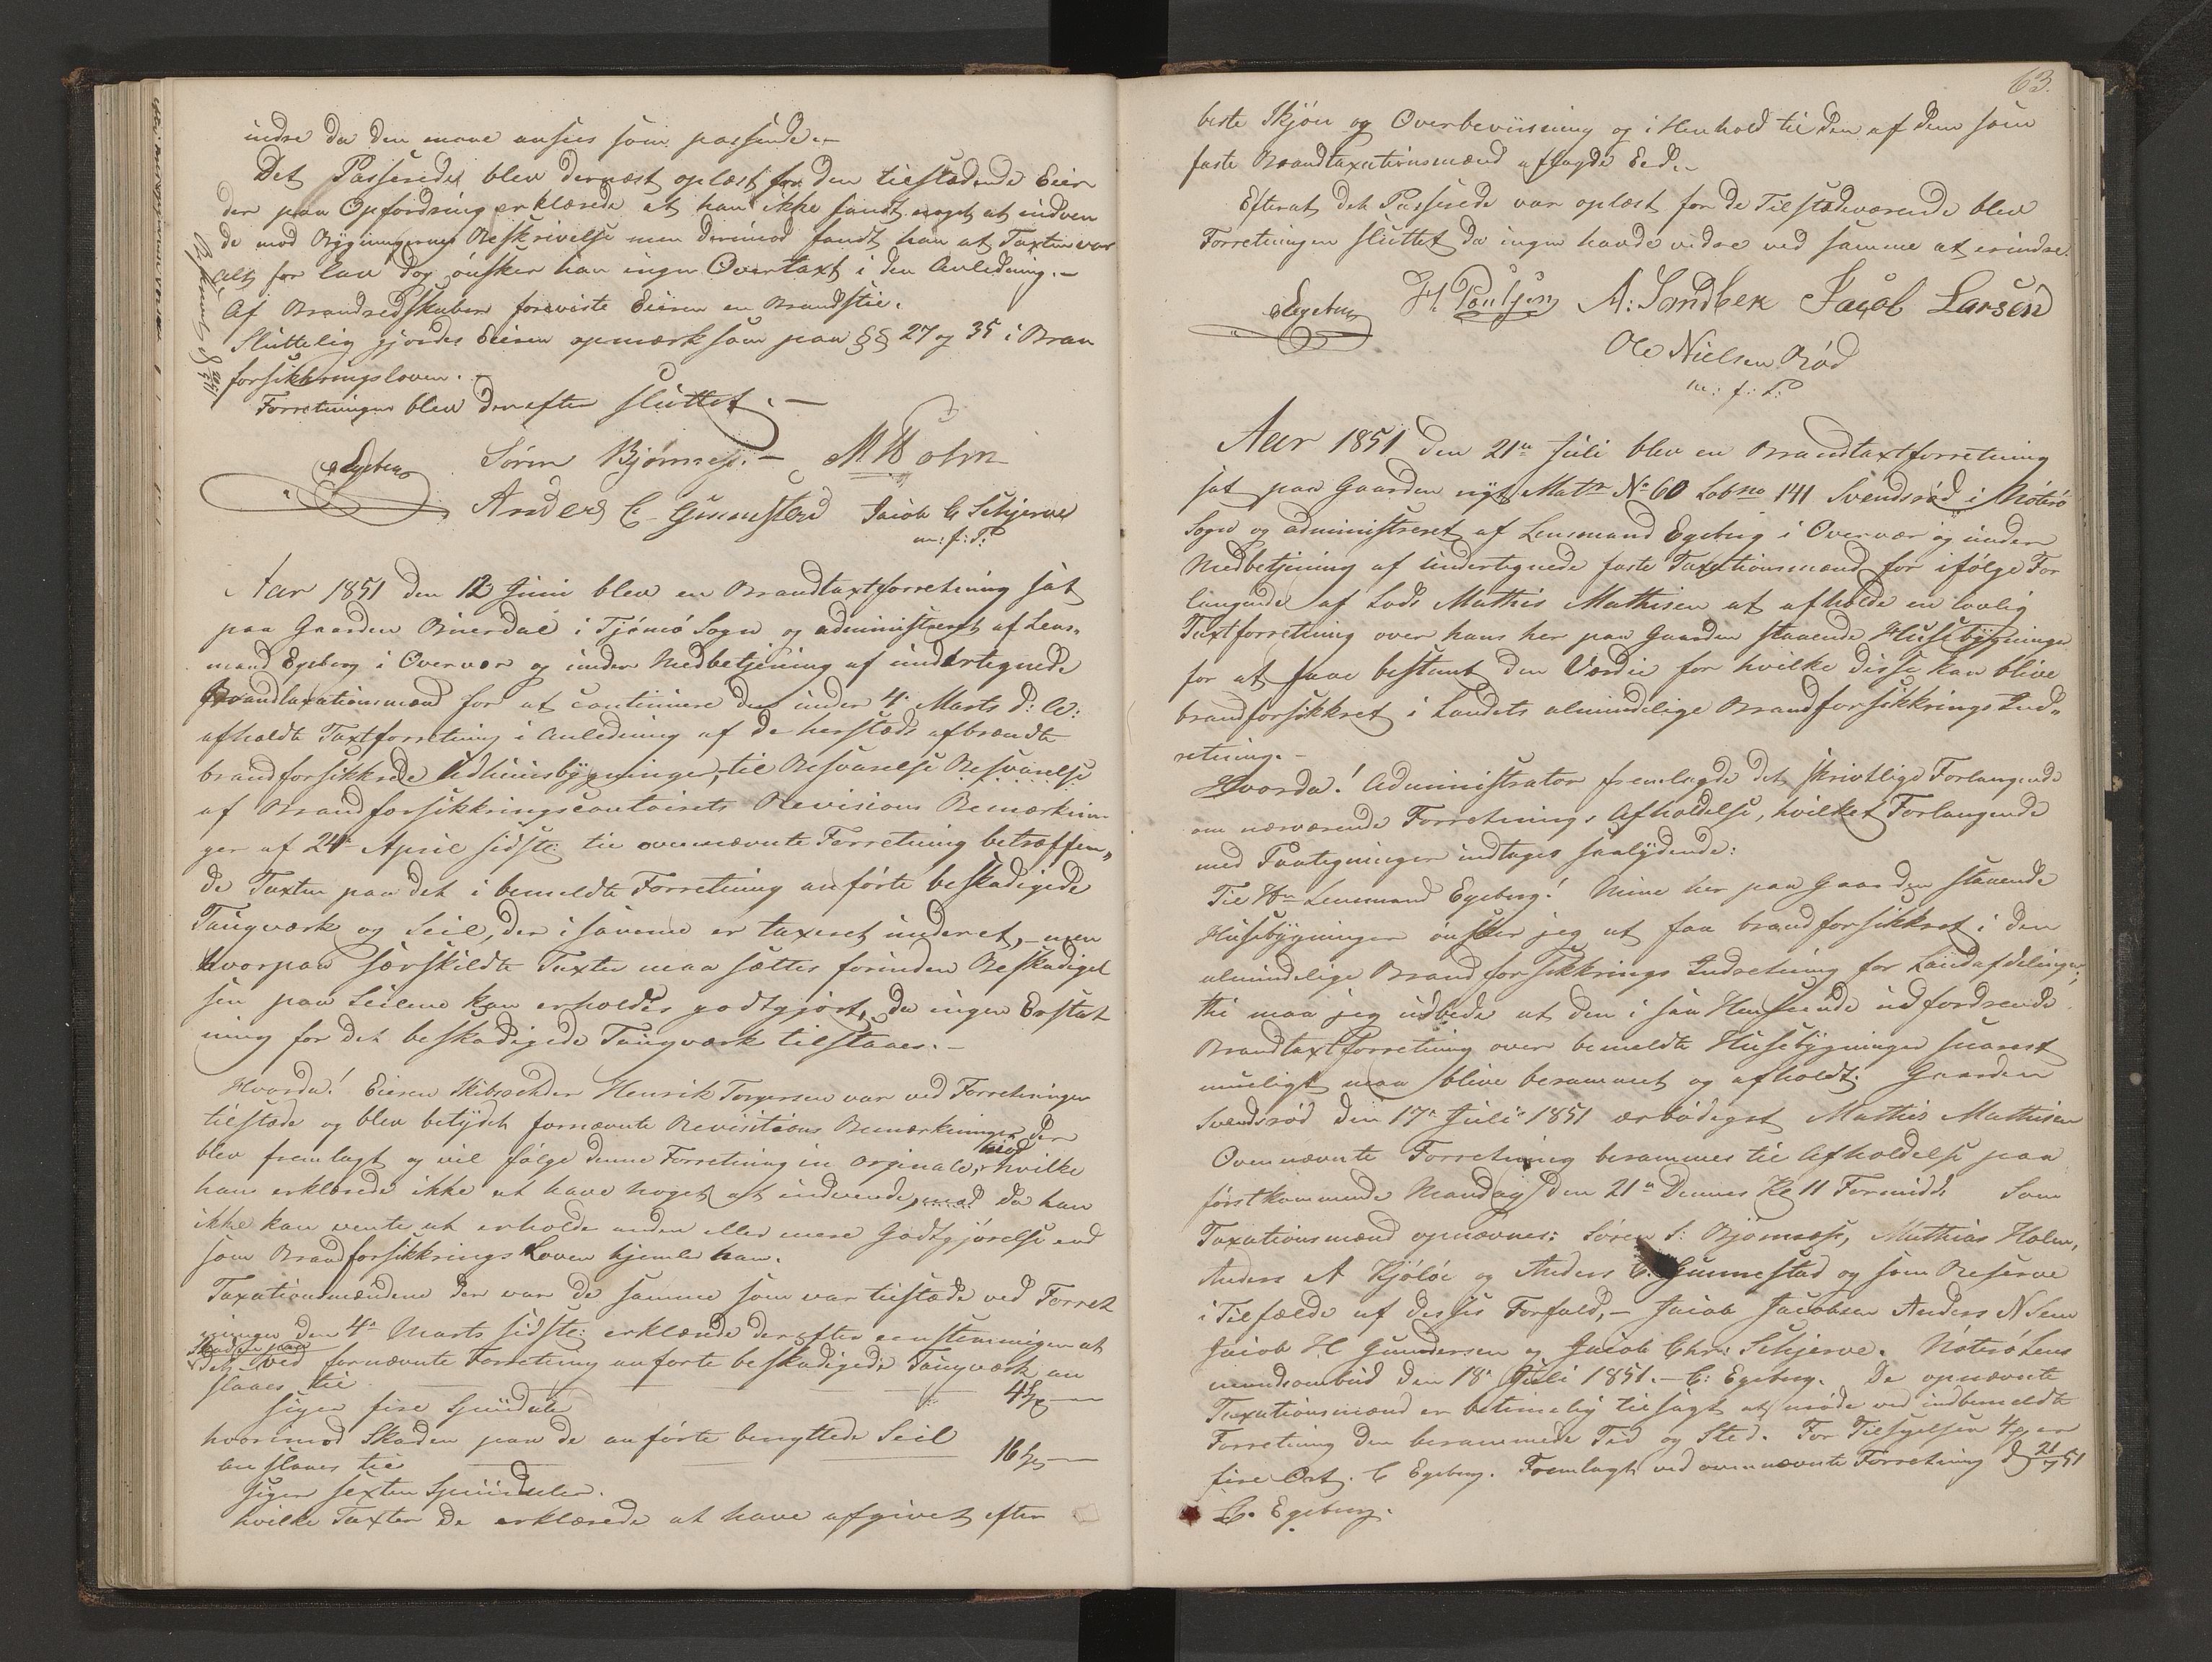 indre da den maae ansees som passende.-
Det Passerede blev dernæst oplæst for den tilstædende Eier
der paa Opfordring erklærede at han ikke fandt noget at indven
de mod Bygningernes Beskrivelse men derimod fandt han at Taxten var
alt for lav dog ønsker han ingen Overtaxt i den Anledning.-
Af Brandredskaber foreviste Eieren en Brandstie.
Sluttelig gjordes Eieren opmærksom paa §§ 27 og 35 i Bran
forsikkringsloven.-
Forretningen blev derefter sluttet.-
Egeberg Søren Bjørnnes.- M Holm
Anders C. Gunnestad Jacob C Schjerve
m: f: P.
Aar 1851 den 12 Juni blev en Brandtaxtforretning sat
paa Gaarden Buerdal i Tjømø Sogn og administreret af Lens-
mand Egeberg i Overvær og under Medbetjening af undertegnede
Brandtaxationsmænd for at continuere den under 4de Marts d: A:
afholdte Taxtforretning i Anledning af de herstæds afbrændte
brandforsikkrede Udhuusbygninger, til Besvarelse Besvarelse
af Brandforsikkringscontoirets Revisions Bemærknin-
ger af 24de April sidstl: til ovennævnte Forretning betræffen-
de Taxten paa det i bemeldte Forretning anførte beskadigede
Taugværk og Seil, der i samme er taxeret under et,- men
hvorpaa særskildte Taxter maa sættes forinden Beskadigel
sen paa Seilene kan erholdes godtgjort, da ingen Erstat
ning for det beskadigede Taugværk tilstaaes.-
Hvorda! Eieren Skibsrheder Henrik Torgersen var ved Forretningen
tilstæde og blev betydet fornævnte Revisitions Bemærkninger der
blev fremlagt og vil følge denne Forretning in orginale, mod hvilke
han erklærede ikke at have noget at indvende, da han
ikke kan vente at erholde anden eller mere Godtgjørelse end
som Brandforsikkrings Loven hjemler ham.
Taxationsmændene der var de samme som var tilstæde ved Forret
ningen den 4de Marts sidstl: erklærede derefter eenstemmigen at
Skaden paa
det ved fornævnte Forretning anførte beskadigede Taugværk an
slaaes til 4
siger fire Spesidaler
hvorimod Skaden paa de anførte benyttede Seil
anslaaes til 16
siger sexten Spesidaler.
hvilke Taxter de erklærede at have afgivet efter
63.
beste Skjøn og Overbeviisning og i Henhold til den af dem som
faste Brandtaxationsmænd aflagde Eed.-
Efterat det Passerede var oplæst for de Tilstædeværende blev
Forretningen sluttet da ingen havde videre ved samme at erindre.
Egeberg H. Poulsen A: Sandbek Jacob Larsen
Ole Nielsen Rød
m: f: P.
Aar 1851 den 21de Juli blev en Brandtaxtforretning
sat paa Gaarden nyt Matr No 60 Lobno 141 Svendsrød i Nøterø
Sogn og administreret af Lensmand Egeberg i Overvær og under
Medbetjening af undertegnede faste Taxationsmænd for ifølge For
langende af Lods Mathis Mathisen at afholde en lovlig
Taxtforretning over hans her paa Gaarden staaende Husebygninger
for at faae bestemt den Værdie for hvilke disse kan blive
brandforsikkret i Landets almindelige Brandforsikkrings Ind-
retning.-
Hvorda! Administrator fremlagde det skrivtlige Forlangende
om nærværende Forretnings Afholdelse, hvilket Forlangende
med Paategninger indtages saalydende:
Til Hr Lensmand Egeberg! Mine her paa Gaarden staaende
Husebygninger ønsker jeg at faa brandforsikkret i den
almindelige Brandforsikkrings Indretning for Landafdelingen;
thi maa jeg udbede at den i saa Henseende udfordrende
Brandtaxtforretning over bemeldte Husebygninger snarest
mueligt maa blive berammet og afholdt. Gaarden
Svendsrød den 17de Juli 1851 ærbødigst Mathis Mathisen
Ovennævnte Forretning berammes til Afholdelse paa
førstkommende Mandag den 21de Dennes Kl 11 Formidd. Som
Taxationsmænd opnævnes: Søren S: Bjørnnæss, Mathias Holm,
Anders A Kjøløe og Anders C. Gunnestad og som Reserve
i Tilfælde af disses Forfald,- Jacob Jacobsen Anders N Sem
Jacob H Gundersen og Jacob Chr: Schjerve. Nøterø Lens
mandsombud den 18de Juli 1851.- C: Egeberg. De opnævnte
Taxationsmænd er betimelig tilsagt at møde ved indbemeldte
Forretning den berammede Tid og Sted. For Tilsigelsen 4 er
fire Ort. C Egeberg. Fremlagt ved ovennævnte Forretning d 21/7 51
C. Egeberg.